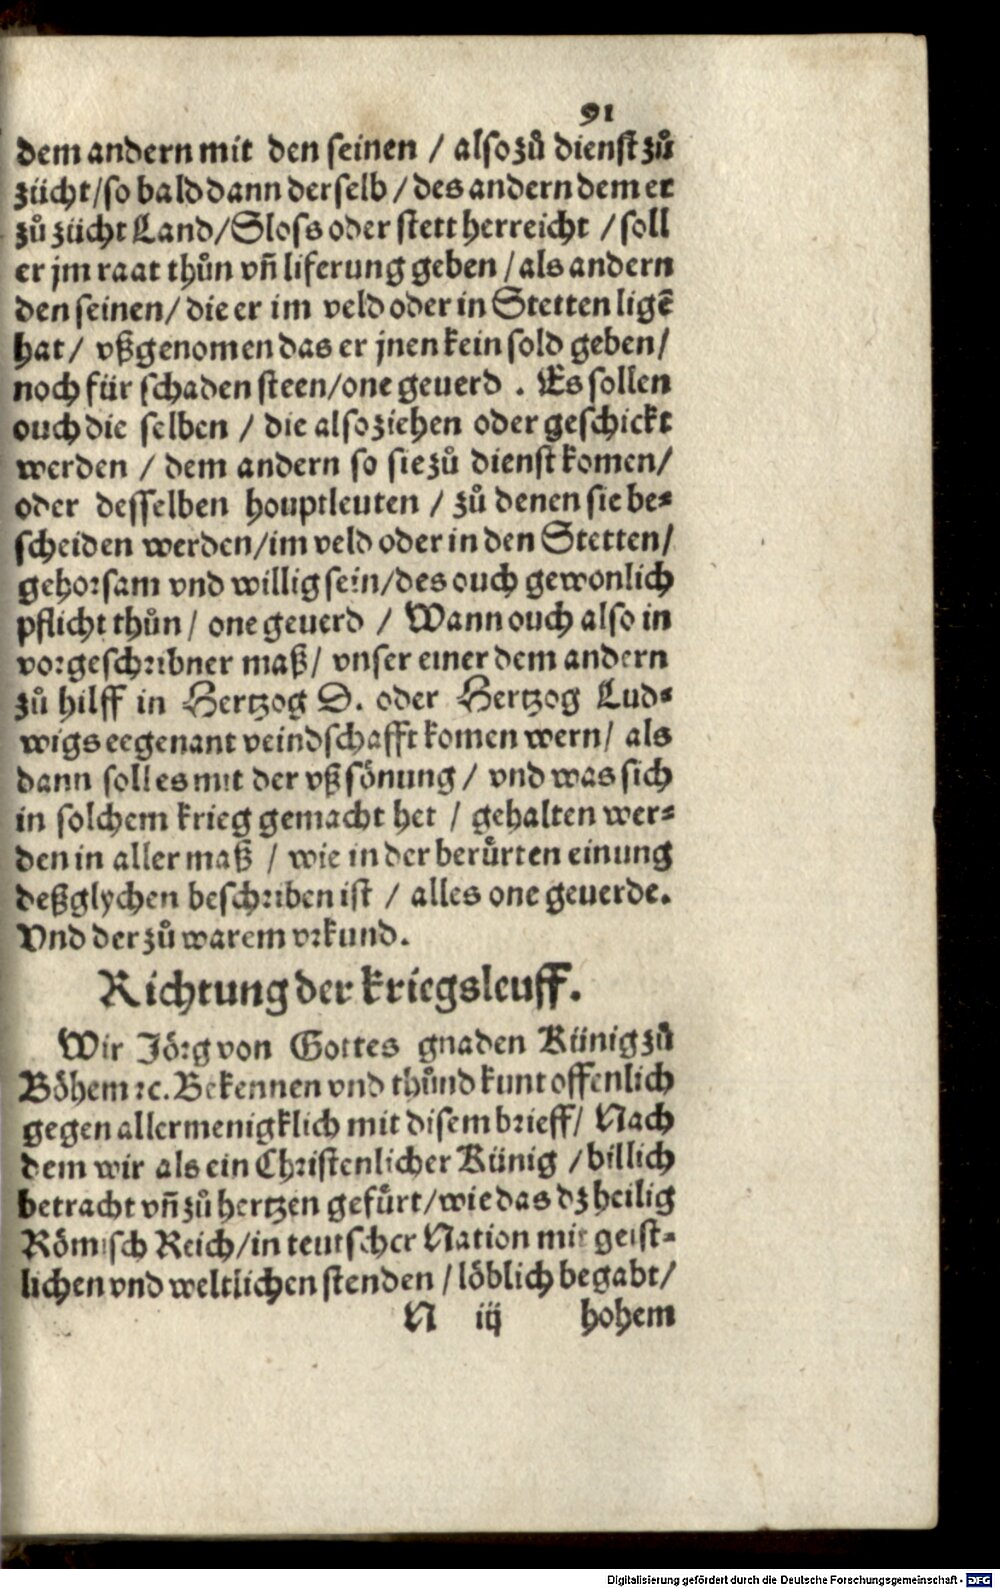 91
dem andern mit den seinen / also zů dienst zů
zücht/so bald dann derselb / des andern dem er
zů zücht Land/Sloss oder stett herreicht / soll
er jm raat thůn vñ liferung geben / als andern
den seinen/ die er im veld oder in Stetten ligẽ
hat/ vßgenomen das er jnen kein sold geben/
noch für schaden steen/one geuerd . Es sollen
ouch die selben / die also ziehen oder geschickt
werden / dem andern so sie zů dienst komen/
oder desselben houptleuten / zů denen sie be-
scheiden werden/im veld oder in den Stetten/
gehorsam vnd willig sein/des ouch gewonlich
pflicht thůn / one geuerd / Wann ouch also in
vorgeschribner maß/ vnser einer dem andern
zů hilff in Hertzog S. oder Hertzog Lud-
wigs eegenant veindschafft komen wern/ als
dann soll es mit der vßsönung / vnd was sich
in solchem krieg gemacht het / gehalten wer-
den in aller maß / wie in der berůrten einung
deßglychen beschriben ist / alles one geuerde.
Vnd der zů warem vrkund.
Richtung der kriegsleuff.
Wir Jörg von Gottes gnaden Künig zů
Böhem ꝛc. Bekennen vnd thůnd kunt offenlich
gegen allermenigklich mit disem brieff/ Nach
dem wir als ein Christenlicher Künig / billich
betracht vñ zů hertzen gefůrt/wie das dz heilig
Römisch Reich/in teutscher Nation mit geist-
lichen vnd weltlichen stenden / löblich begabt/
N iij hohem
Digitalisierung gefördert durch die Deutsche Forschungsgemeinschaft - DFG